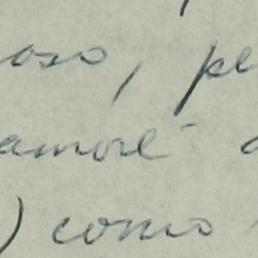 oso, pe
amore"
) como